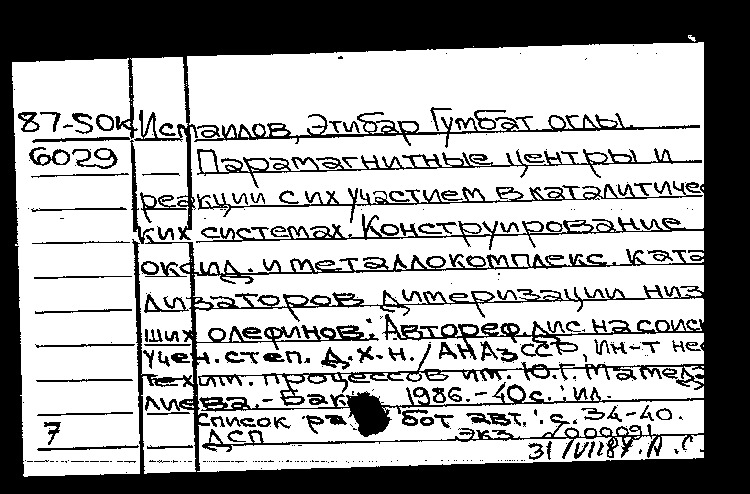 87-50к Исмаилов, Этибар Гумбат оглы.
6029 Парамагнитные центры и
реакции с их участием в каталитичес
ких системах. Конструирование
оксид. и металлокомплекс. ката
лизаторов димеризации низ
ших олефинов: Автореф. дис. на соиск
учен. степ. д.х.н. / АН АзССР, Ин-т не
техим. процессов им. Ю.Г. Мамед
лиева. - Баку 1986. - 40с.: ил.
список работ авт.: с. 34-40.
7 ДСП экз. №000091
31/VII87. А.С.